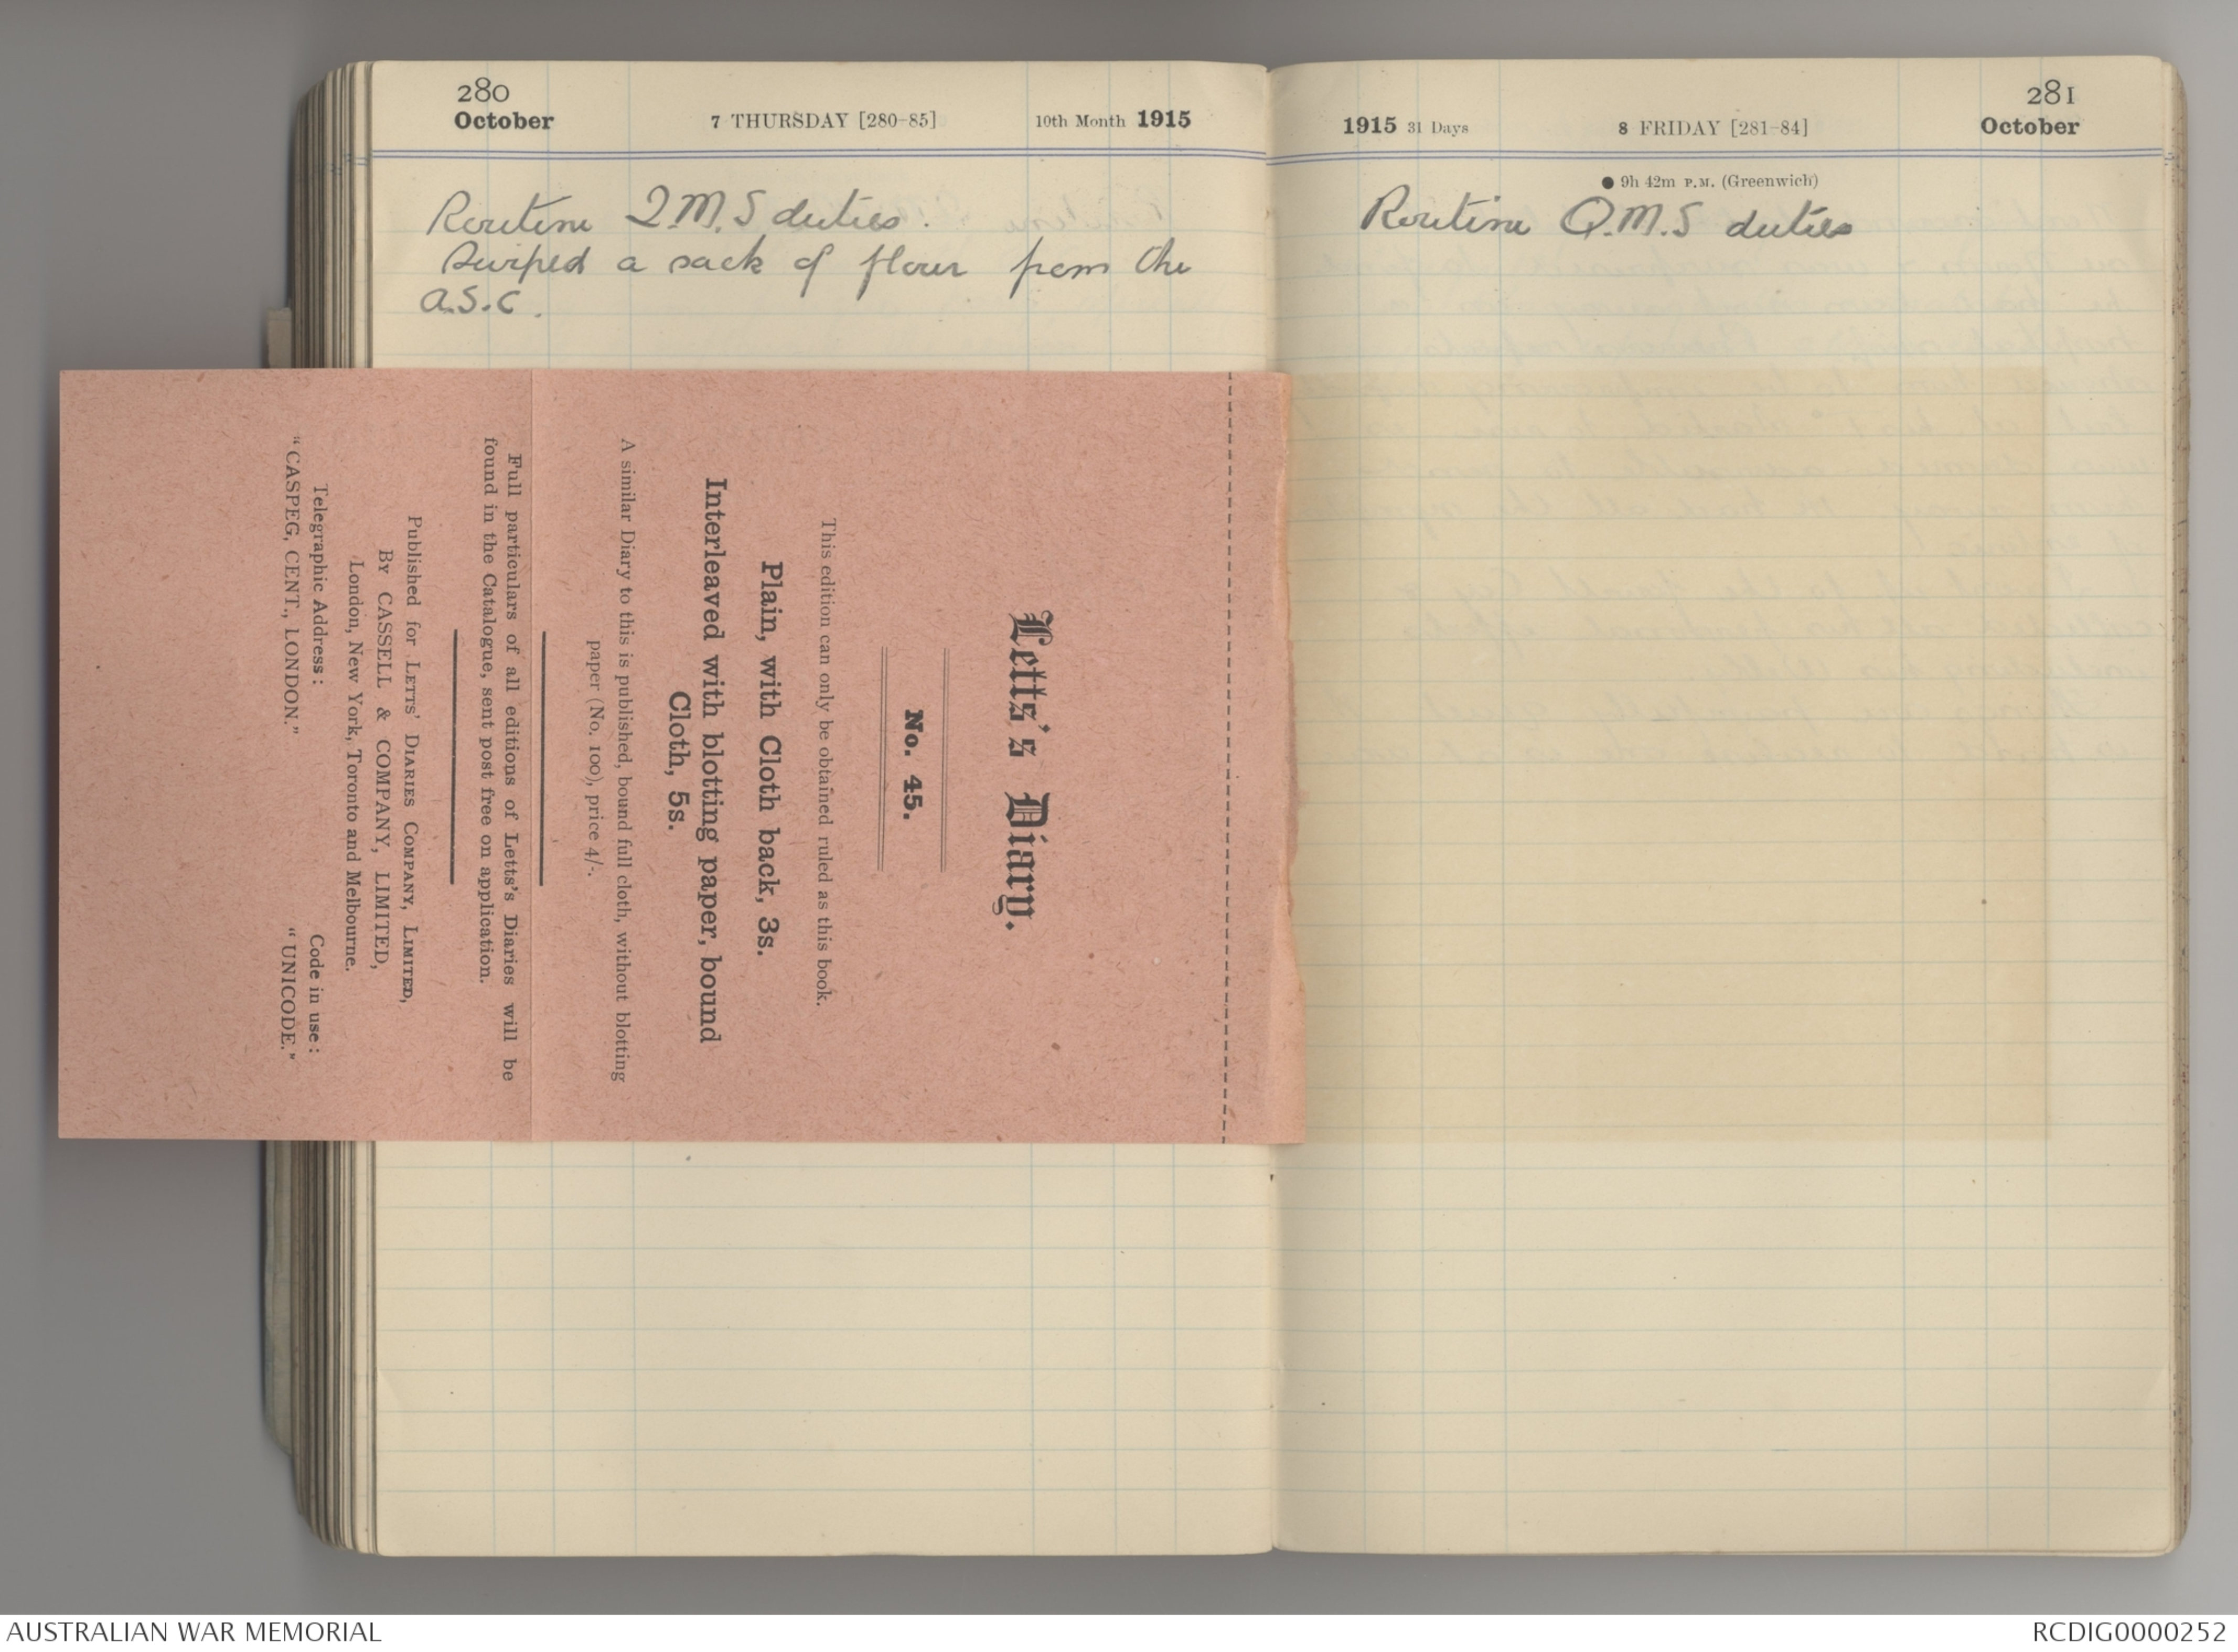 280
October 7 THURSDAY [280-85] 10th Month 1915
Routine Q.M.S duties.
Swiped a sack of flour from the
A.S.C.
Letts's Diary.
No. 45.
This edition can only be obtained ruled as this book.
Plain, with Cloth back, 3s.
Interleaved with blotting paper, bound
Cloth, 5s.
A similar Diary to this is published, bound full cloth, without blotting
paper (No. 100), price 4/-.
Full particulars of all editions of Letts's Diaries will be
found in the Catalogue, sent post free on application.
Published for LETTS' DIARIES COMPANY, LIMITED,
BY CASSELL & COMPANY, LIMITED,
London, New York, Toronto and Melbourne.
Telegraphic Address: Code in use:
"CASPEG, CENT., LONDON." "UNICODE."
281
1915 31 Days 8 FRIDAY [281-84] October
● 9h 42m P.M. (Greenwich)
Routine Q.M.S duties
AUSTRALIAN WAR MEMORIAL RCDIG0000252